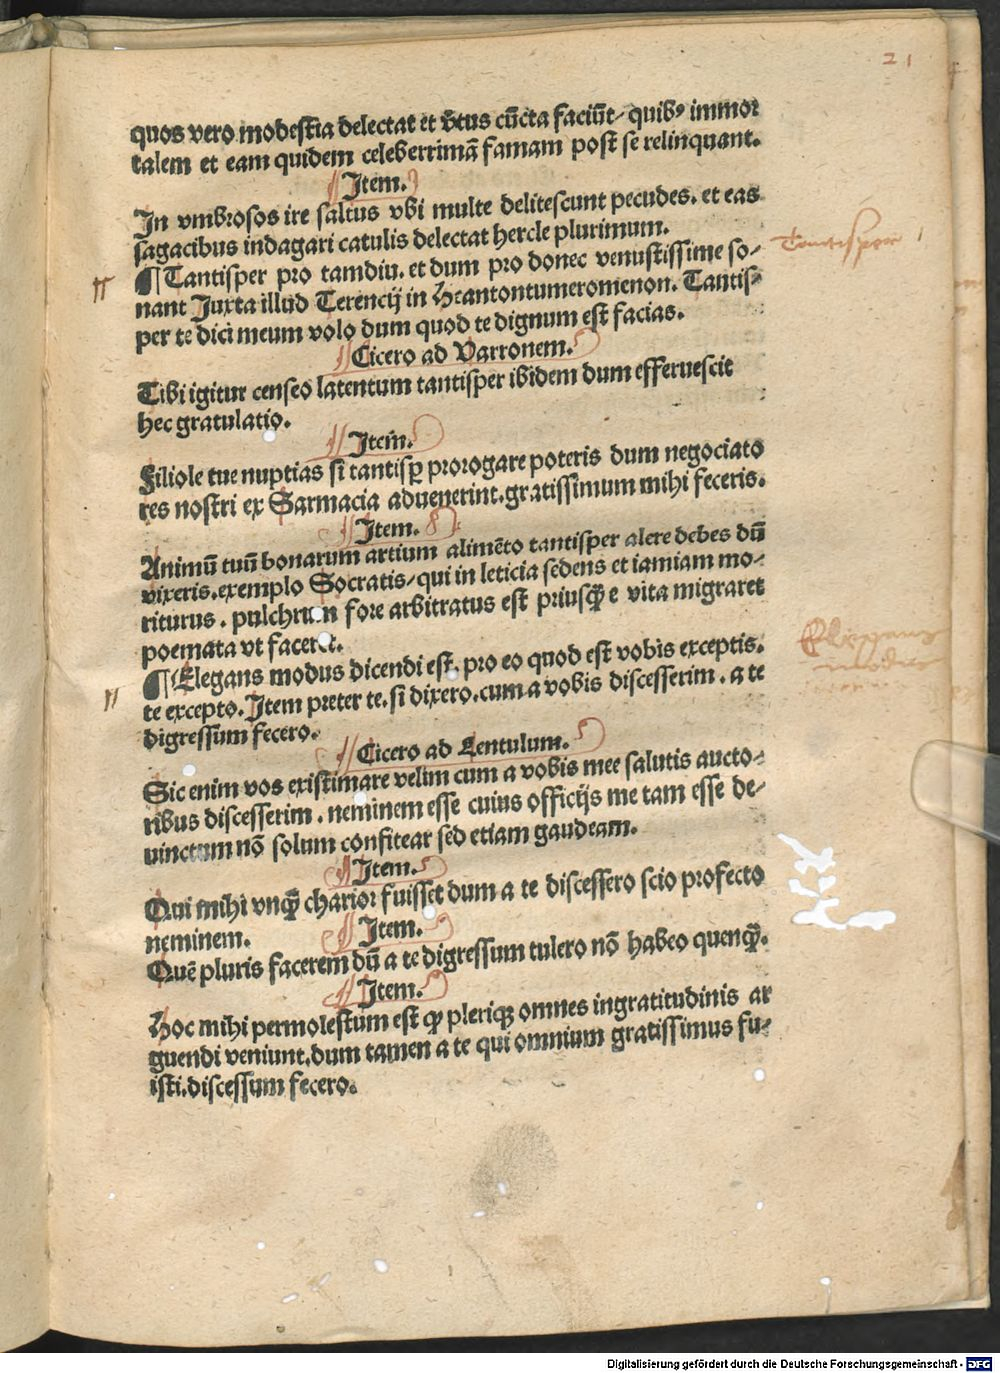 21
quos vero modestia delectat et v̄tus cūcta faciūt / quibꝰ immor
talem et eam quidem celeberrimā famam post se relinquant.
Item.
In vmbrosos ire saltus vbi multe delitescunt pecudes. et eas
sagacibus indagari catulis delectat hercle plurimum.
¶ Tantisper pro tamdiu. et dum pro donec venustissime so⸗
nant Juxta illud Terencij in Heantontumeromenon. Tantis⸗
per te dici meum volo dum quod te dignum est facias.
Tantisper
Cicero ad Varronem.
Tibi igitur censeo latentum tantisper ibidem dum efferuescit
hec gratulatio.
Item.
Filiole tue nuptias si tantisꝑ prorogare poteris dum negociato
res nostri ex Sarmacia aduenerint. gratissimum mihi feceris.
Item.
Animū tuū bonarum artium alimēto tantisper alere debes dū
vixeris. exemplo Socratis / qui in leticia sedens et iamiam mo⸗
riturus. pulchrum fore arbitratus est priusꝙ̄ e vita migraret
poemata vt faceret.
¶ Elegans modus dicendi est. pro eo quod est vobis exceptis.
te excepto. Item preter te. si dixero. cum a vobis discesserim. a te
digressum fecero.
Cicero ad Lentulum.
Sic enim vos existimare velim cum a vobis mee salutis aucto⸗
ribus discesserim. neminem esse cuius officijs me tam esse de⸗
uinctum nō solum confitear sed etiam gaudeam.
Item.
Qui mihi vnꝙ̄ charior fuisset dum a te discessero scio profecto
neminem.
Item.
Quē pluris facerem dū a te digressum tulero nō habeo quenꝙ̄.
Item.
Hoc mihi permolestum est ꝙ pleriqꝫ omnes ingratitudinis ar
guendi veniunt. dum tamen a te qui omnium gratissimus fu⸗
isti. discessum fecero.
Digitalisierung gefördert durch die Deutsche Forschungsgemeinschaft - DFG